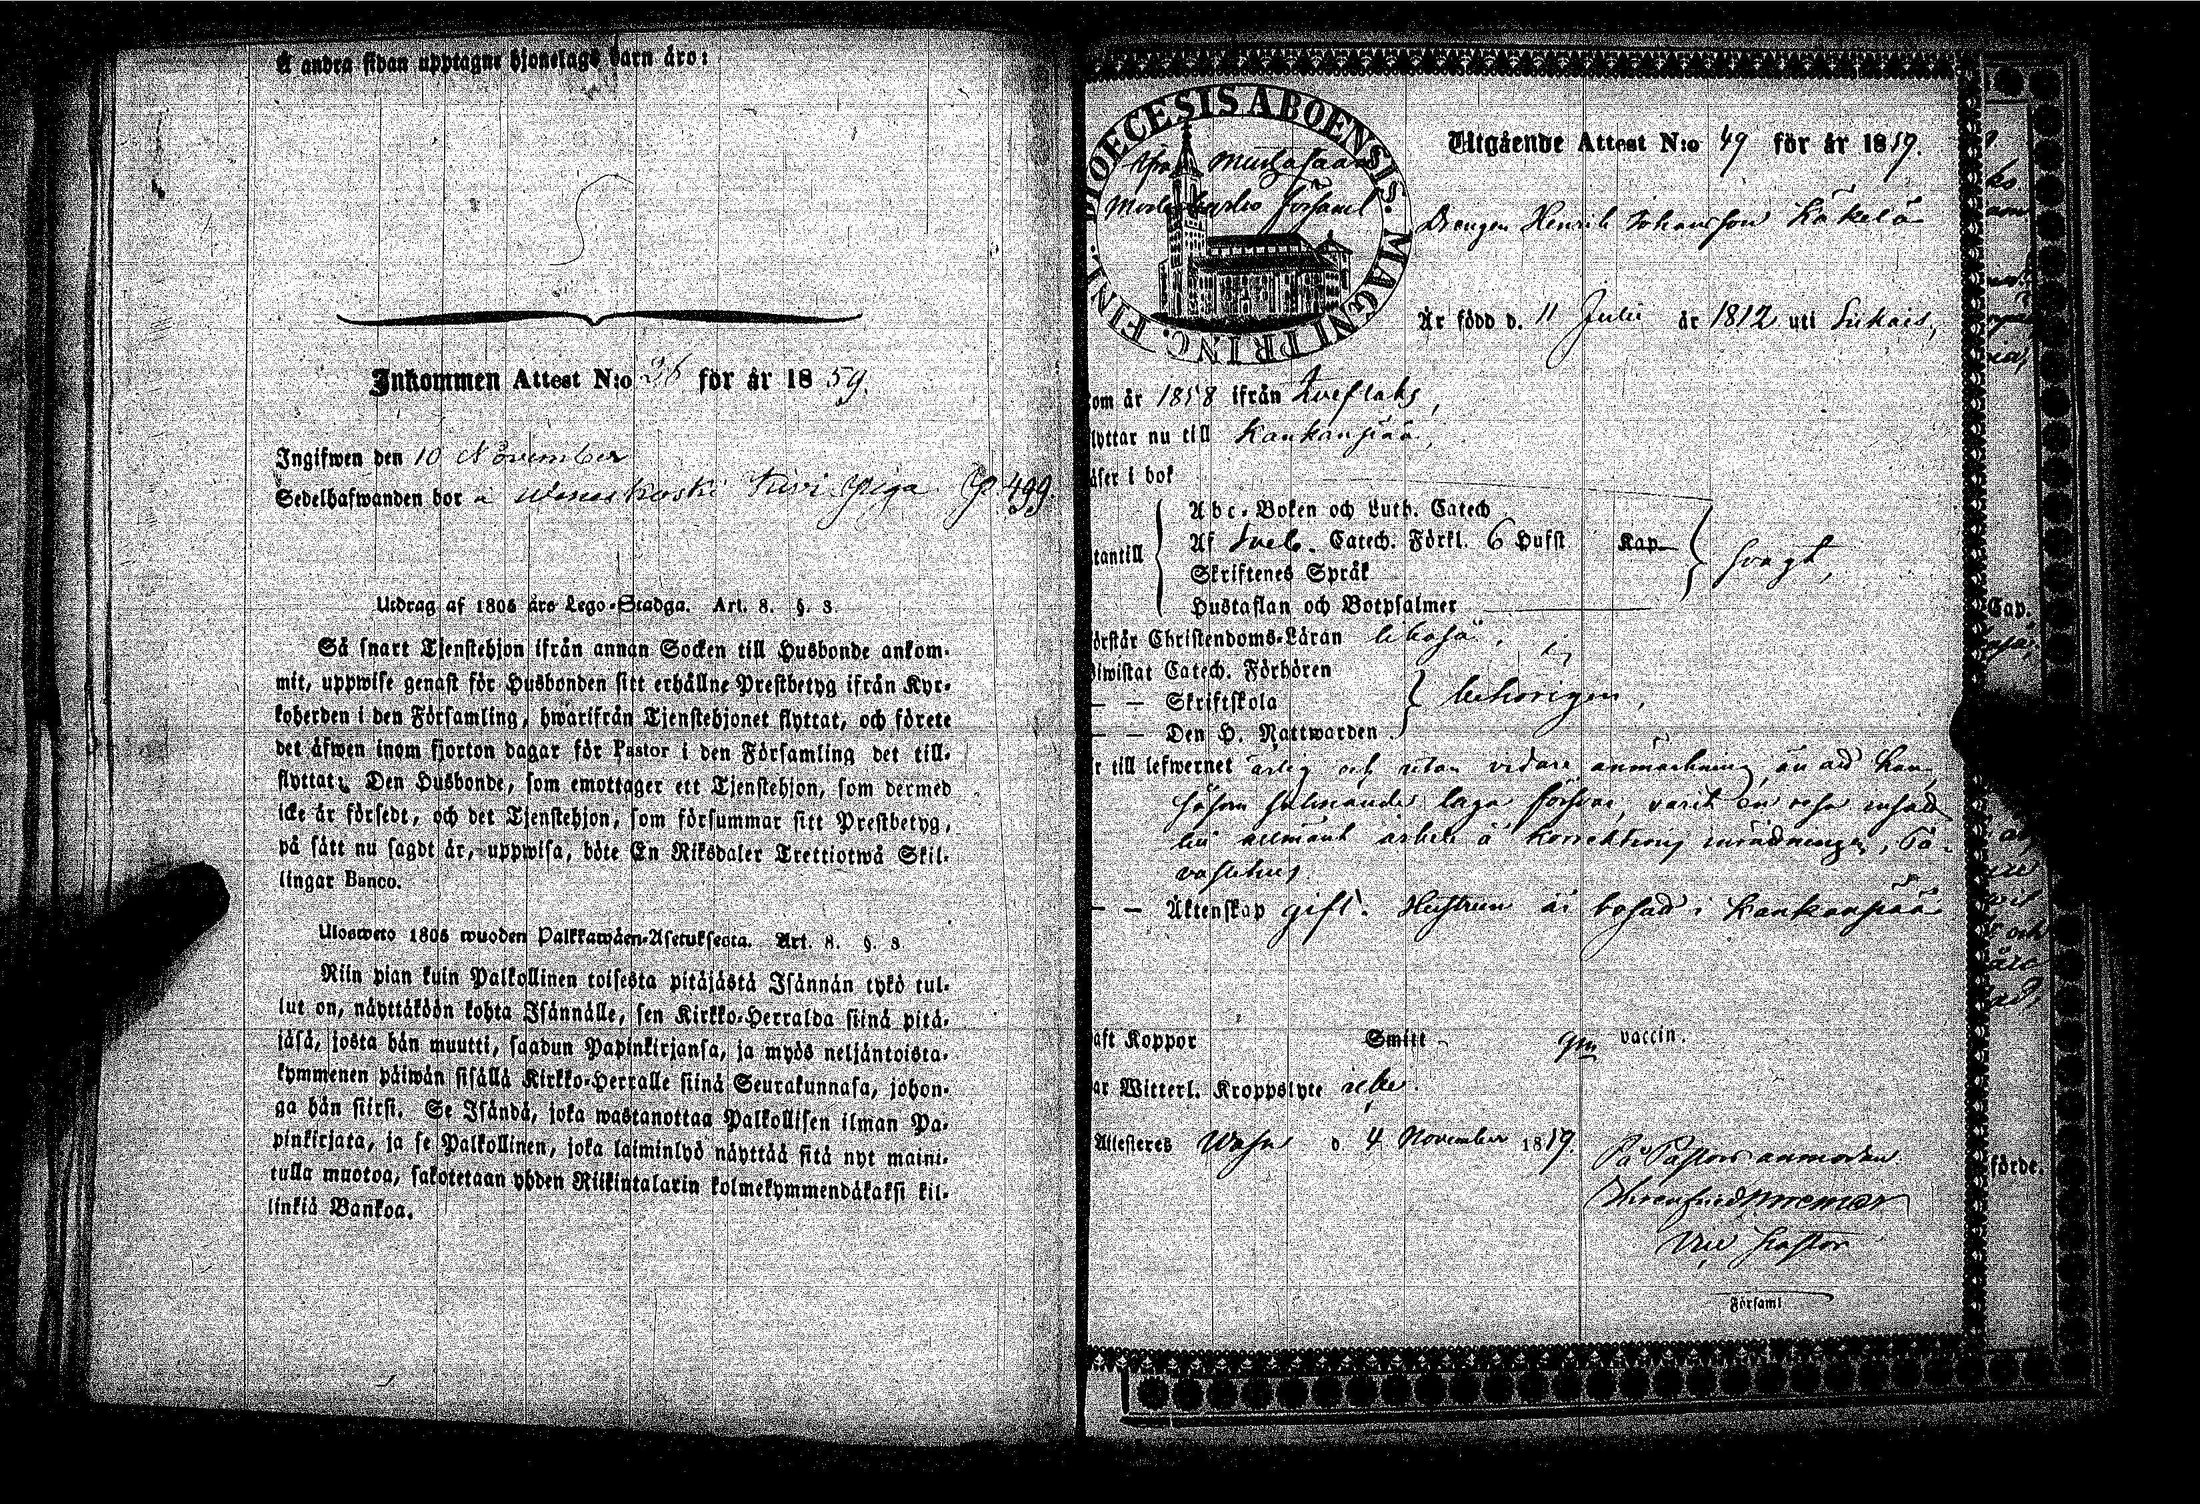 Å andra sidan upptagne hjonelags barn äro:
Inkommen Attest N:o 36 för år 1859.
Ingifwen den 10 November
Sedelhafwanden bor å piga P. 499.
Utdrag af 1805 års Lego-Stadga. Art. 8. §. 3
Så snart Tjenstehjon ifrån annan Socken till Husbonde ankom-
mit, uppwise genast för Husbonden sitt erhållne Prestbetyg ifrån Kyr-
koherden i den Församling, hwarifrån Tjenstehjonet flyttat, och förete
det äfwen inom fjorton dagar för Pastor i den Församling det till-
flyttat. Den Husbonde, som emottager ett Tjenstehjon, som dermed
icke är försedt, och det Tjenstehjon, som försummar sitt Prestbetyg,
på sätt nu sagdt är, uppwisa, böte En Riksdaler Trettiotwå Skil-
lingar Banco.
Ulosweto 1805 wuoden Palkkawäen-Asetuksesta. Art. 8. §. 3
Niin pian kuin Palkollinen toisesta pitäjästä Isännän tykö tul-
lut on, näyttäköön kohta Isännälle, sen Kirkko-Herralda siinä pitä-
jäsä, josta hän muutti, saadun Papinkirjansa, ja myös neljäntoista-
kymmenen päiwän sisällä Kirkko-Herralle siinä Seurakunnasa, johon-
ga hän siirsi. Se Isändä, joka wastanottaa Palkollisen ilman Pa-
pinkirjata, ja se Palkollinen, joka laiminlyö näyttää sitä nyt maini-
tulla muotoa, sakotetaan yhden Riikintalarin kolmekymmendäkaksi kil-
linkiä Bankoa.
DIOECESIS ABOENSIS. MAGNI PRINC. FINL.
från Mustasaari
Moderkyrko församl
Utgående Attest N:o 49 för år 1859.
Drengen Henrik Johansson Käkelä
Är född d. 11 Julii år 1812 uti Siikais,
om år 1858 ifrån Qveflaks,
lyttar nu till Kankanpää,
äser i bok
tantill
Abc-Boken och Luth. Catech
Af Sveb. Catech. Förkl. 6 Hufst Kap.
Skriftenes Språk
Hustaflan och Botpsalmer
svagt,
örstår Christendoms-Läran likaså,
iwistat Catech. Förhören
— — Skriftskola
— — Den H. Nattwarden
behörigen,
r till lefwernet ärlig och utan vidare anmärkning, än att han,
såsom saknande laga försvar, varit en resa insatt
till allmänt arbete å Korrektions inrädningen, Ta-
vastehus
— — Äktenskap gift. Hustrun är bosatt i Kankanpää
aft Koppor Smitt gm vaccin.
ar Witterl. Kroppslyte icke.
Attesteres Wasa d. 4 November 1859.
På Pastors anmodan
Vice Pastor
Församl
Cap.
förde.